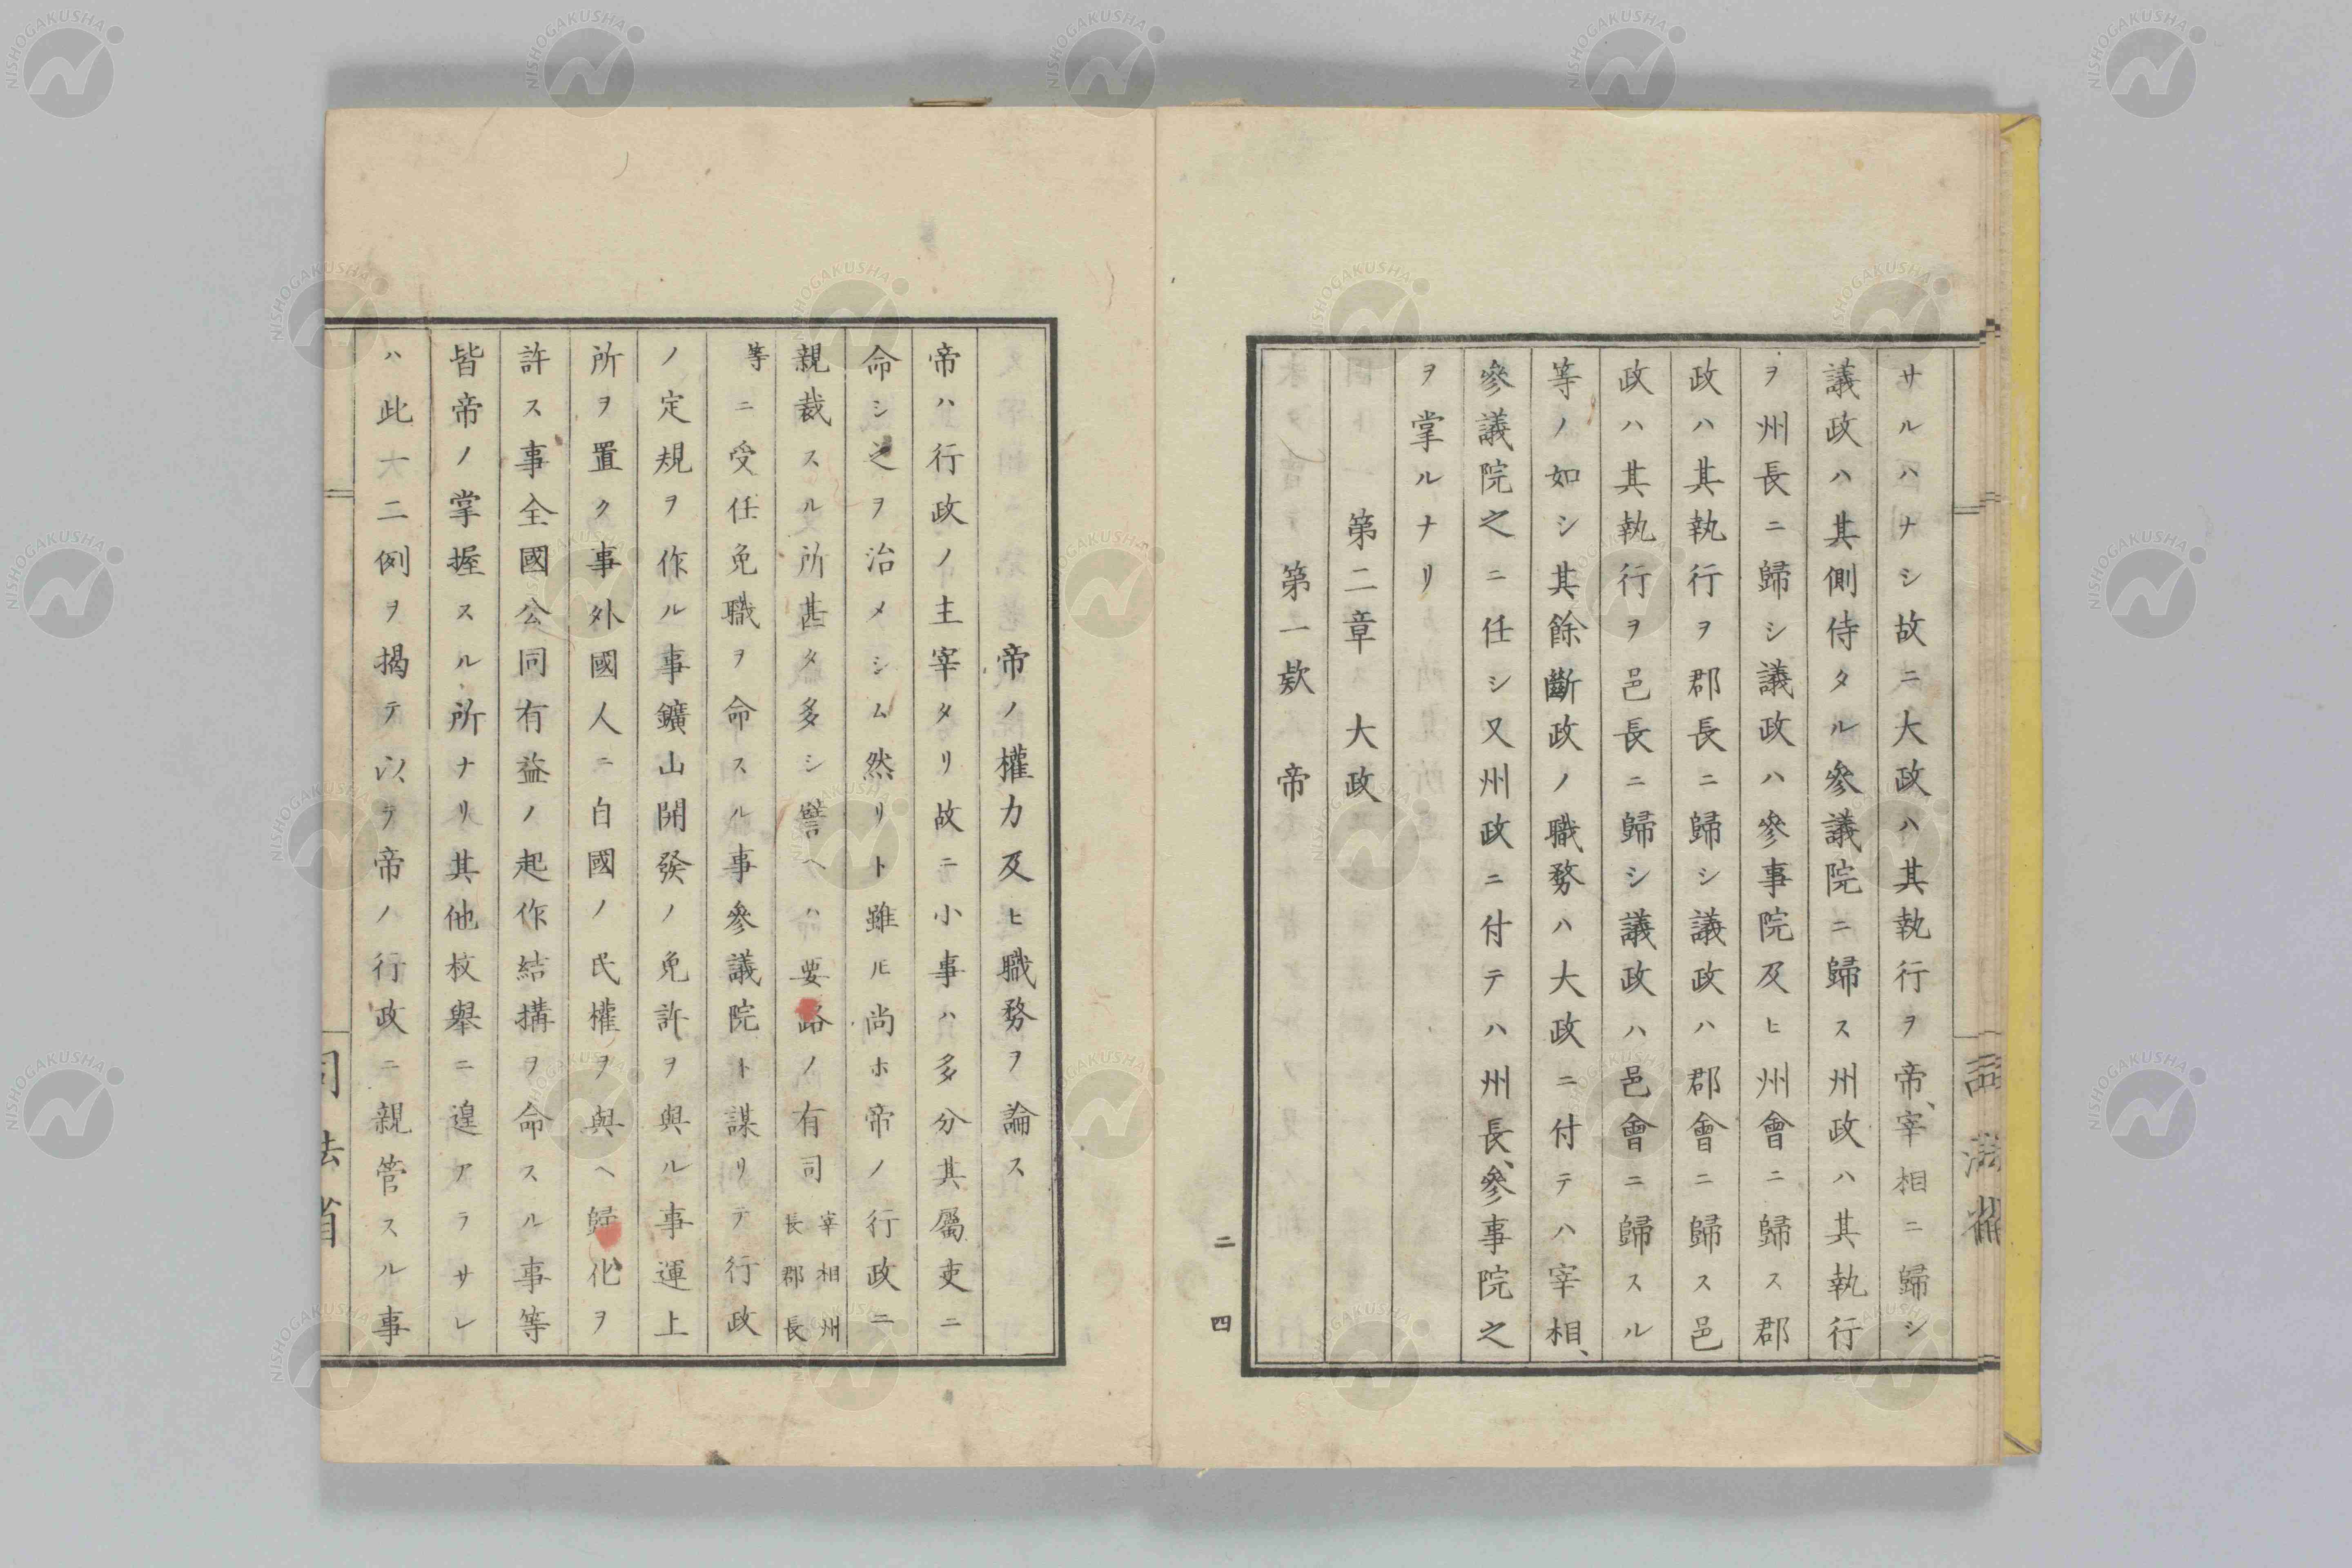 サルハナシ故ニ大政ハ其執行ヲ帝、宰相ニ歸シ
議政ハ其側侍タル參議院ニ歸ス州政ハ其執行
ヲ州長ニ歸シ議政ハ參事院及ヒ州會ニ歸ス郡
政ハ其執行ヲ郡長ニ歸シ議政ハ郡會ニ歸ス邑
政ハ其執行ヲ邑長ニ歸シ議政ハ邑會ニ歸スル
等ノ如シ其餘斷政ノ職務ハ大政ニ付テハ宰相、
參議院之ニ任シ又州政ニ付テハ州長、參事院之
ヲ掌ルナリ
第二章 大政
第一欵 帝
二 四
帝ノ權力及ヒ職務ヲ論ス
帝ハ行政ノ主宰タリ故ニ小事ハ多分其屬吏ニ
命シ之ヲ治メシム然リト雖𪜈尚ホ帝ノ行政ニ
親裁スル所甚タ多シ譬ヘハ要路ノ有司宰相州長郡長
等ニ受任免職ヲ命スル事參議院ト謀リテ行政
ノ定規ヲ作ル事鑛山開發ノ免許ヲ與ル事運上
所ヲ置ク事外國人ニ自國ノ民權ヲ與ヘ歸化ヲ
許ス事全國公同有益ノ起作結搆ヲ命スル事等
皆帝ノ掌握スル所ナリ其他枚舉ニ遑アラサレ
ハ此大二例ヲ揭テ以テ帝ノ行政ニ親管スル事
司法省
NISHOGAKUSHA